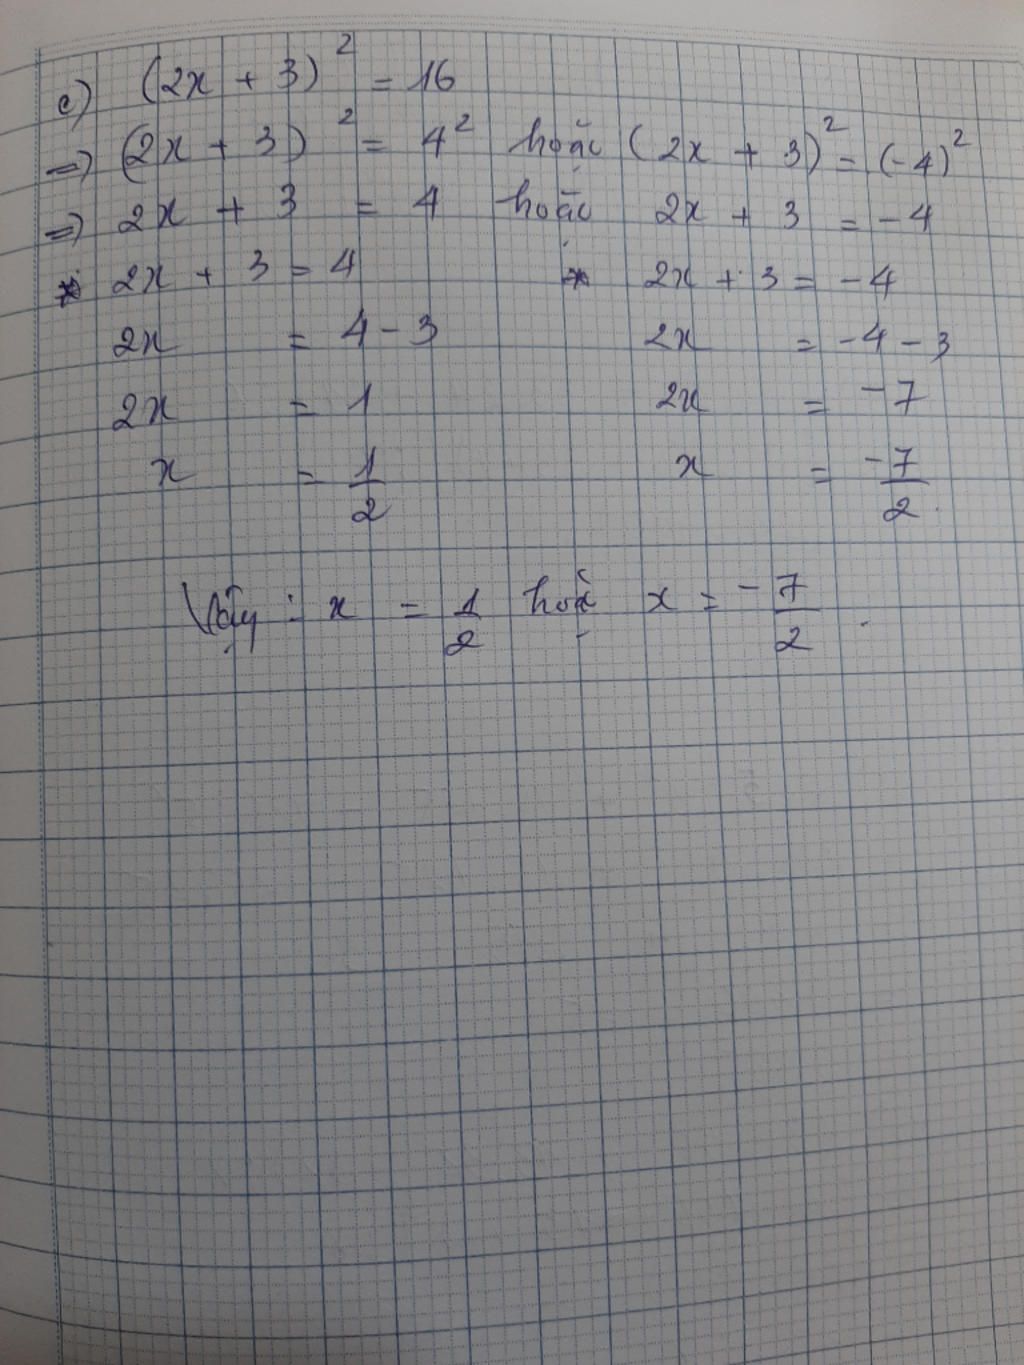 c) (2x + 3)² = 16
=> (2x + 3)² = 4² hoặc (2x + 3)² = (-4)²
=> 2x + 3 = 4 hoặc 2x + 3 = -4
* 2x + 3 = 4 * 2x + 3 = -4
2x = 4 - 3 2x = -4 - 3
2x = 1 2x = -7
x = 1/2 x = -7/2
Vậy : x = 1/2 hoặ x = -7/2 .